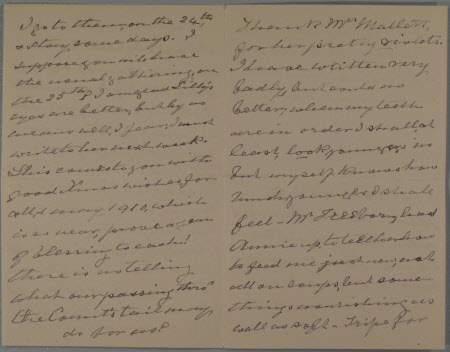 I go to them, on the 24th,
& stay some days. I
suppose you will have
the usual gathering, on
the 25th. I am glad Lilly's
eyes are better, but by no
means well, I fear. I must
write to her next week.
This comes to you with
good Xmas wishes for
all, & may 1910, which
is so near, prove a year
of blessing to each!
there is no telling
what our passing thro'
the Comet's tail may
do for us?
Thank Mrs Mallett,
for her pretty violets.
I have written very
badly, but can do no
better, when my teeth
are in order I shall, at
least, look younger, so
but myself knows how
much younger I shall
feel - Mr Freeborn had
Annie up to tell her how
to feed me just now, not
all on soups, but some
things nourishing as
well as soft - Tripe for